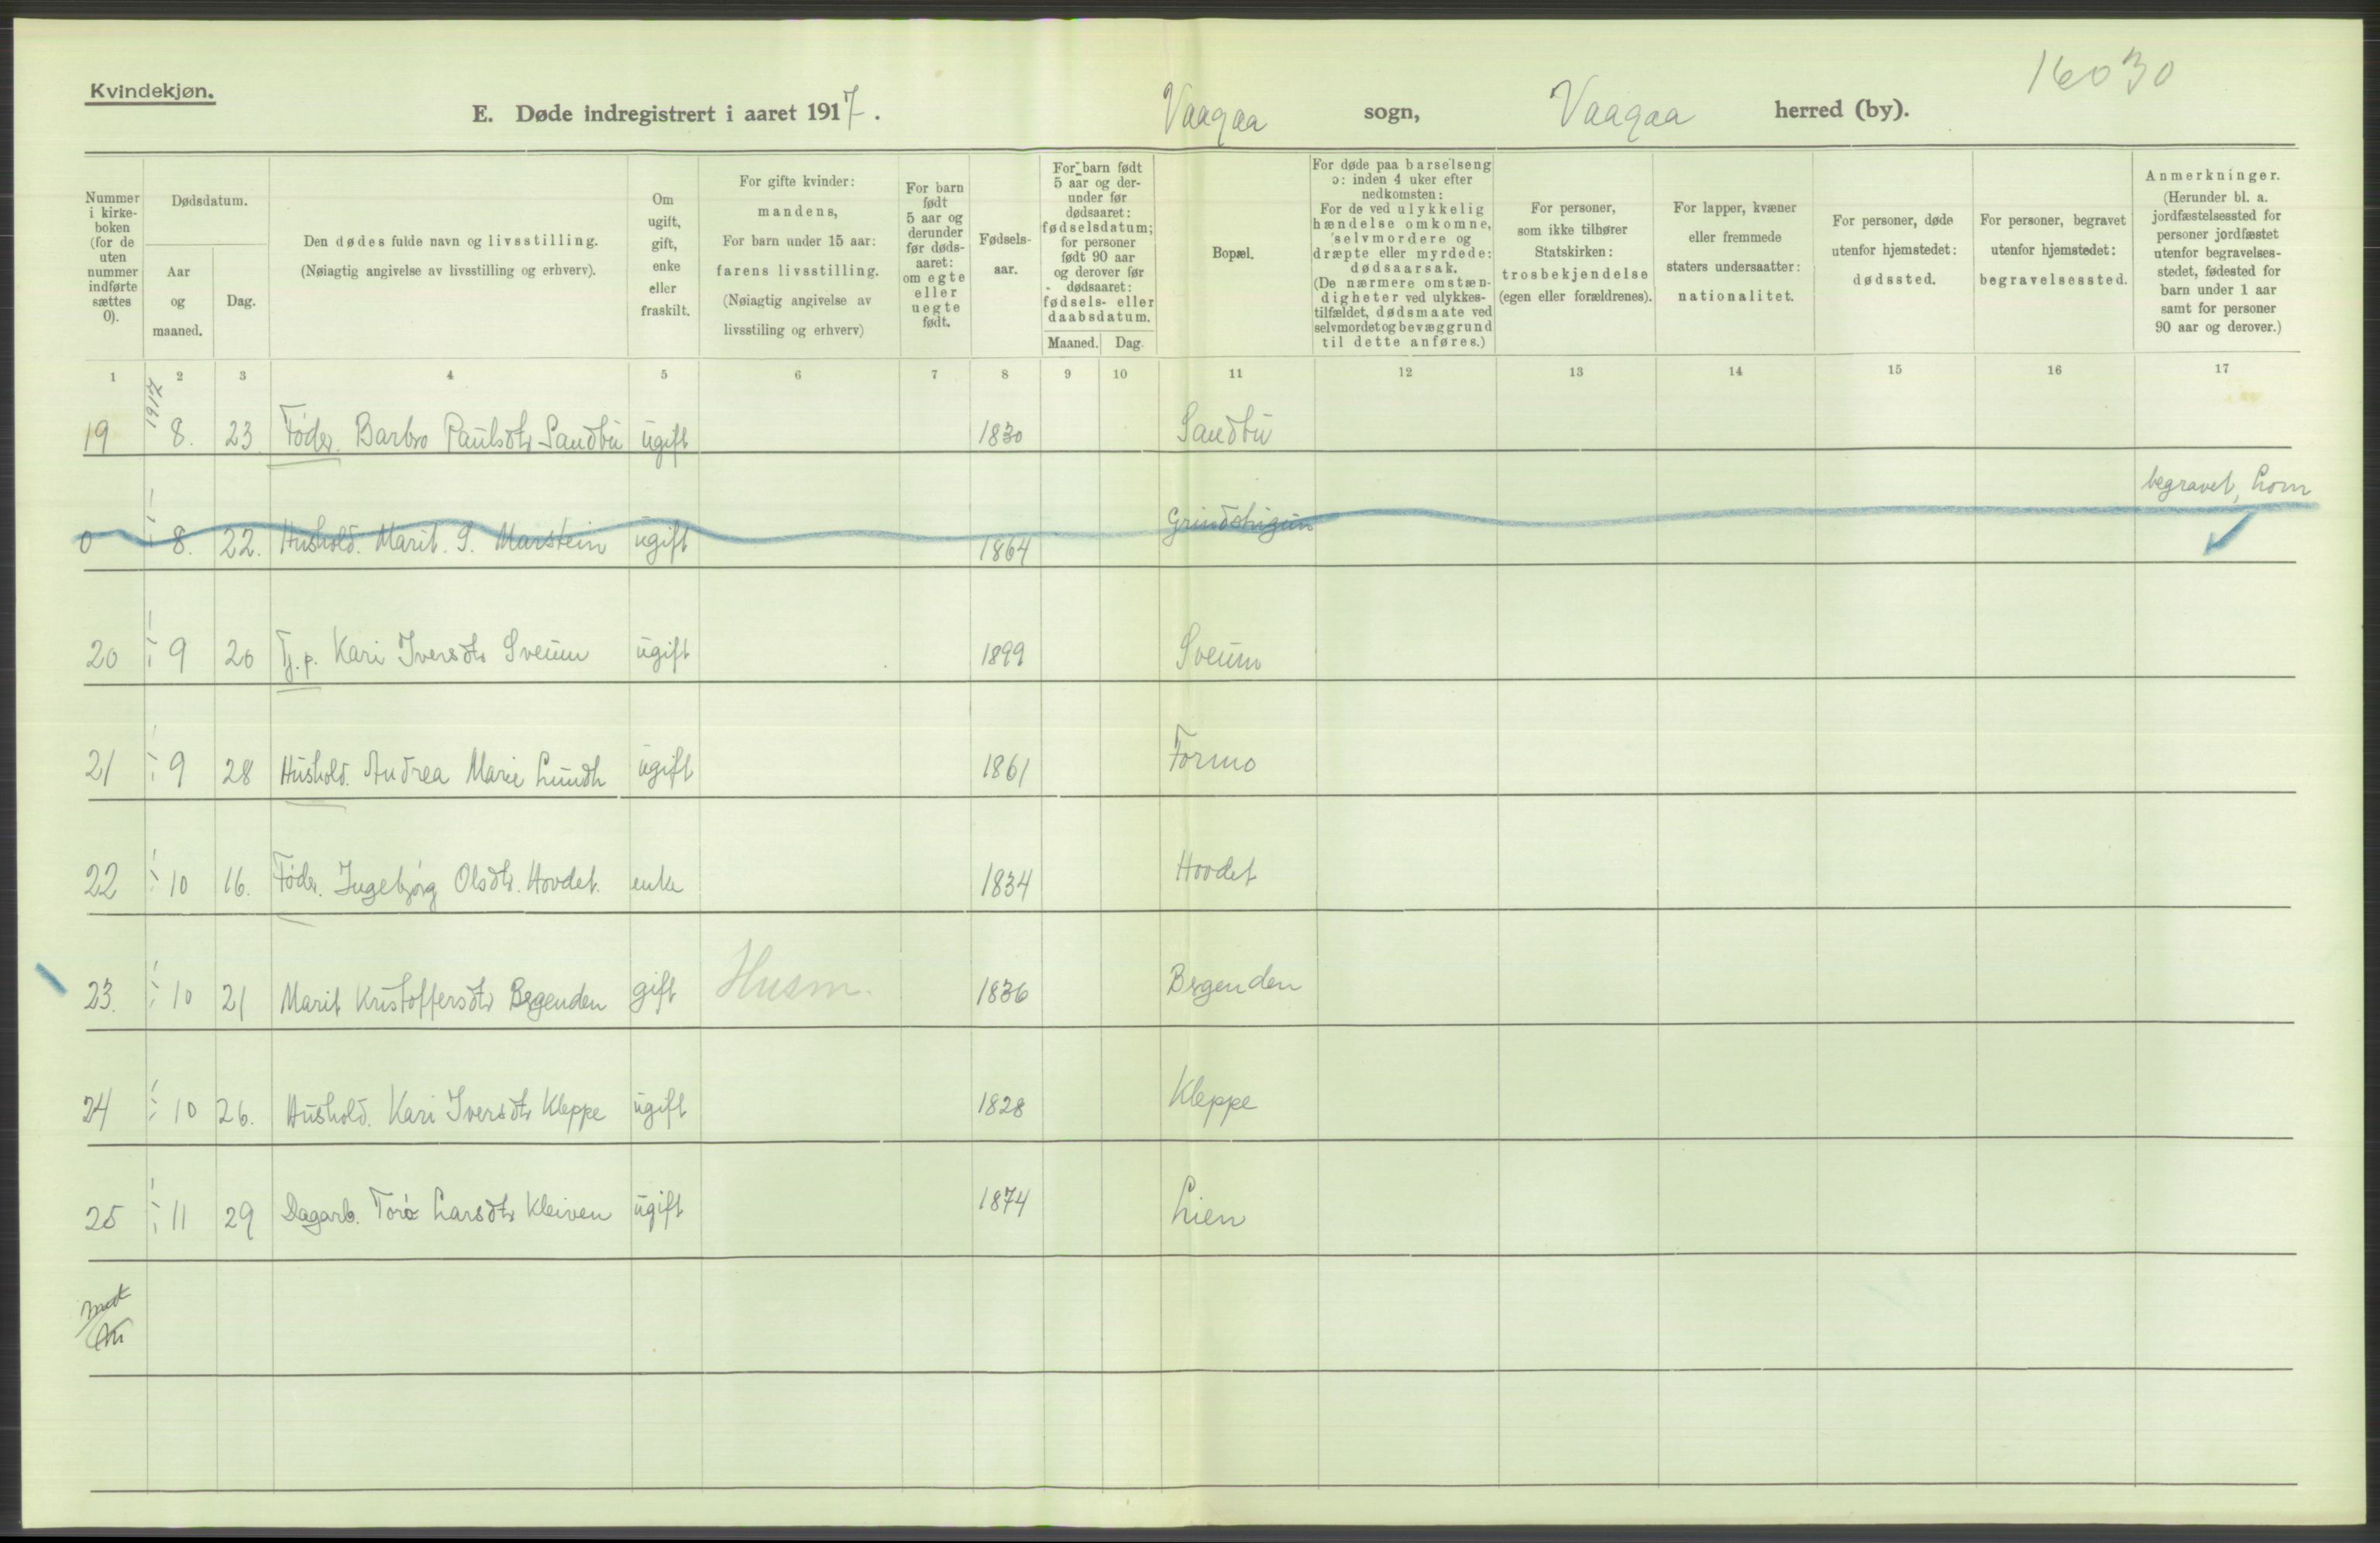 Kvindekjøn.
16030
E. Døde indregistrert i aaret 1917. Vaagaa sogn, Vaagaa herred (by).
Nummer i kirke- boken (for de uten nummer indførte sættes 0).
Dødsdatum.
Aar og maaned.
Dag.
Den dødes fulde navn og livsstilling.
(Nøiagtig angivelse av livsstilling og erhverv).
Om ugift, gift, enke eller fraskilt.
For gifte kvinder: mandens,
For barn under 15 aar: farens livsstilling.
(Nøiagtig angivelse av livsstiling og erhverv)
For barn født 5 aar og derunder før døds- aaret: om egte eller uegte født.
Fødsels- aar.
For barn født 5 aar og der- under før dødsaaret: fødselsdatum; for personer født 90 aar og derover før dødsaaret: fødsels- eller daabsdatum.
Maaned. Dag.
Bopæl.
For døde paa barselseng ɔ: inden 4 uker efter nedkomsten:
For de ved ulykkelig hændelse omkomne, selvmordere og dræpte eller myrdede: dødsaarsak.
(De nærmere omstæn- digheter ved ulykkes- tilfældet, dødsmaate ved selvmordet og bevæggrund til dette anføres.)
For personer, som ikke tilhører Statskirken: trosbekjendelse (egen eller forældrenes).
For lapper, kvæner eller fremmede staters undersaatter: nationalitet.
For personer, døde utenfor hjemstedet: dødssted.
For personer, begravet utenfor hjemstedet: begravelsessted.
Anmerkninger.
(Herunder bl. a. jordfæstelsessted for personer jordfæstet utenfor begravelses- stedet, fødested for barn under 1 aar samt for personer 90 aar og derover.)
1 2 3 4 5 6 7 8 9 10 11 12 13 14 15 16 17
1917
19 8. 23 Føder. Barbro Paulsdtr Sandbu ugift 1830 Sandbu
begravet, Lom
0 8. 22. Hushold. Marit. S. Marstein ugift 1864
20 9 20 Tj.p. Kari Iversdtr Sveum ugift 1899 Sveum
21 9 28 Hushold. Andrea Marie Lundh ugift 1861 Formo
22 10 16. Føder. Ingebjørg Olsdtr. Hovdet. enke 1834 Hovdet
23. 10 21 Marit Kristoffersdtr Bræenden gift Husm. 1836 Brænden
24 10 26. Hushold. Kari Iversdtr Kleppe ugift 1828 Kleppe
25 11 29 Dagarb. Torø Larsdtr Kleiven ugift 1874 Lien